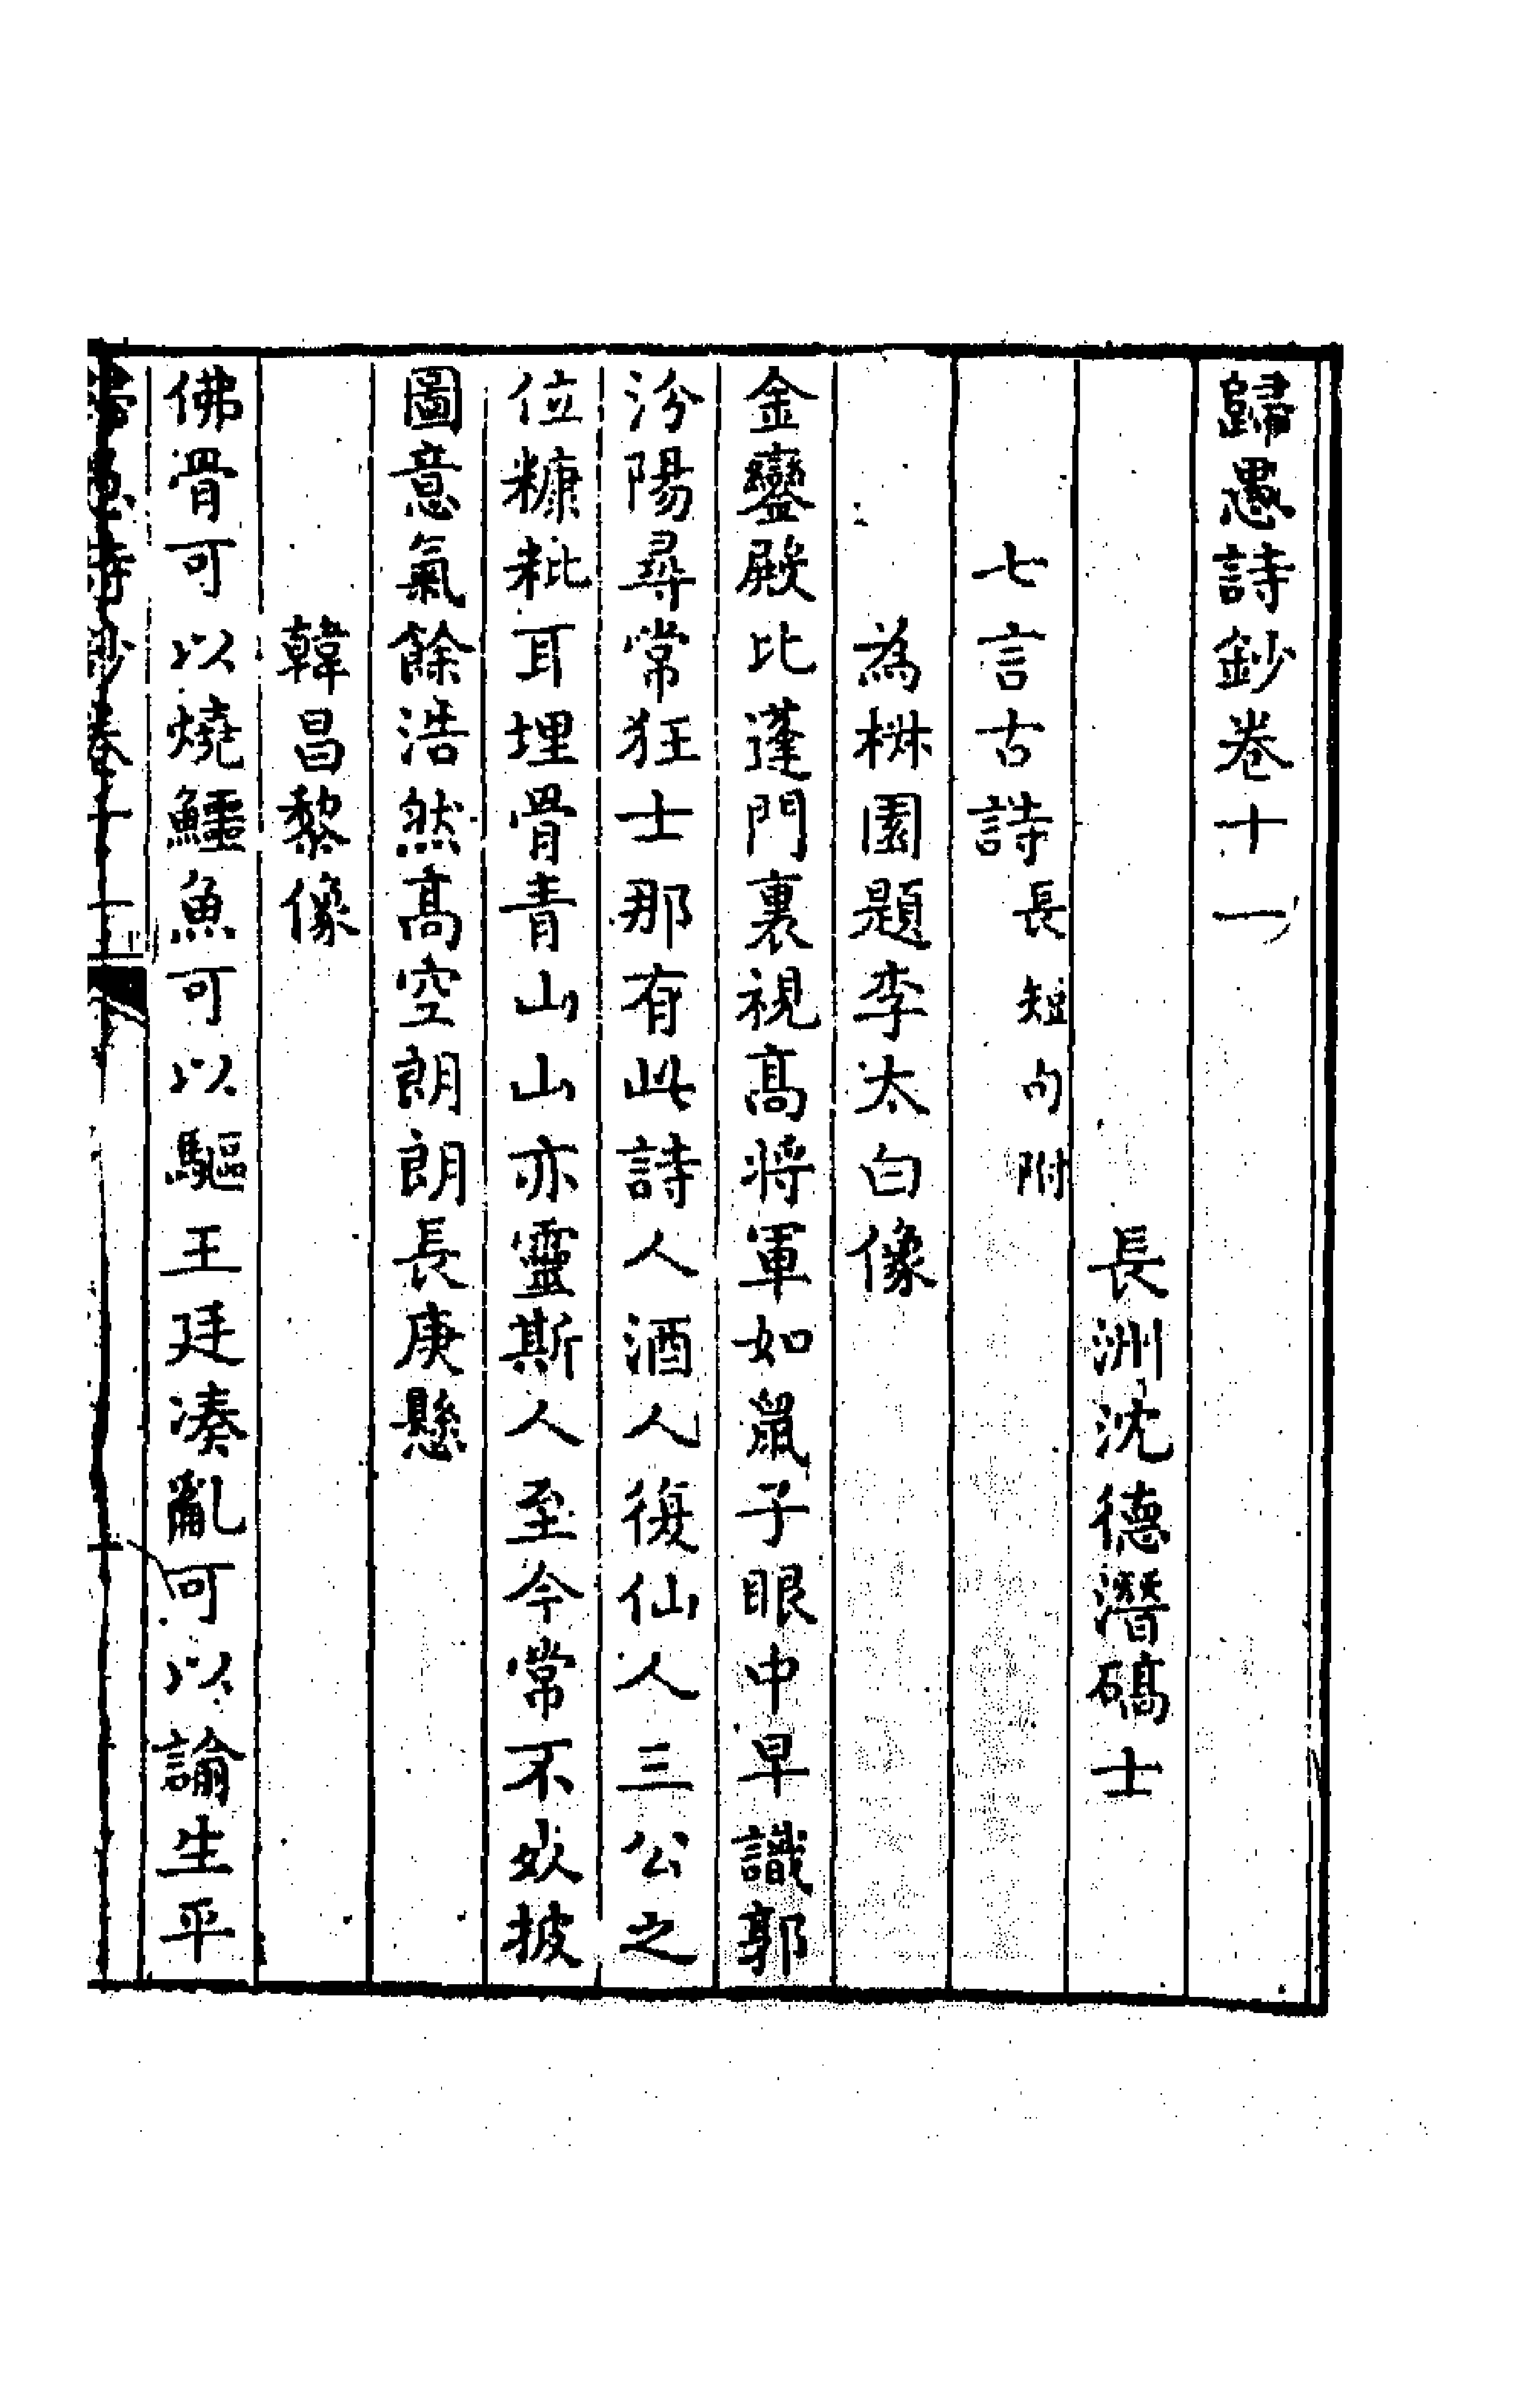 歸愚詩鈔卷十一
長洲沈德潛碻士
七言古詩長短句附
為柟園題李太白像
金鑾殿比蓬門裏視高將軍如鼠子眼中早識郭
汾陽尋常狂士那有此詩人酒人復仙人三公之
位糠粃耳埋骨青山山亦靈斯人至今常不死披
圖意氣餘浩然高空朗朗長庚懸
韓昌黎像
佛骨可以燒鱷魚可以驅王廷湊亂可以諭生平
歸愚詩鈔卷十一